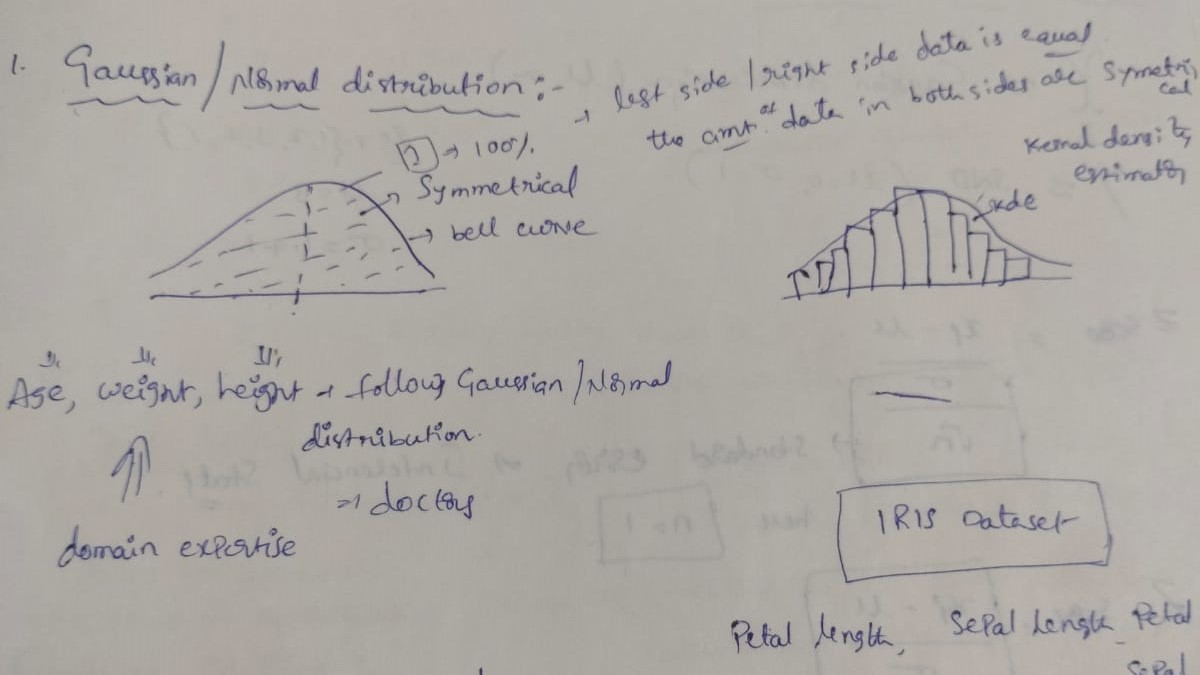 1. Gaussian / Normal distribution :-
→ left side / right side data is equal
the amt. of data in both sides are Symetri
cal
1 → 100%.
Symmetrical
bell curve
Kernal density
estimator
kde
Age, weight, height → follows Gaussian / Normal
distribution.
⇒ doctors
domain expertise
IRIS Dataset
Petal length, Sepal Length Petal
Sepal